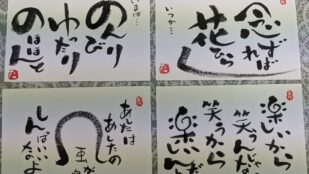 のんびり
ゆったり
のほほんと
いつか…
念ずれば
花ひらく
あしたは
あしたの
風が
しんぱいないよ
楽しいから
笑うんじゃな
笑うから
楽しいんだ